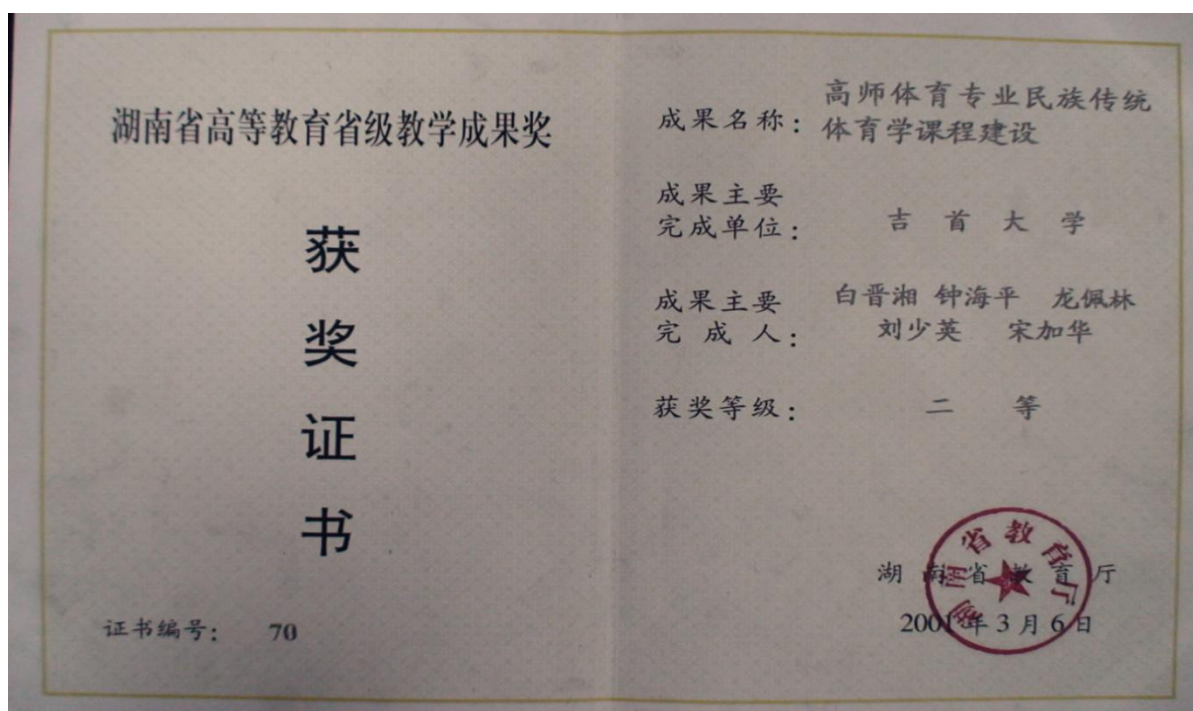 湖南省高等教育省级教学成果奖
获
奖
证
书
证书编号: 70
成果名称: 高师体育专业民族传统
体育学课程建设
成果主要
完成单位: 吉首大学
成果主要 白晋湘 钟海平 龙佩林
完成人: 刘少英 宋加华
获奖等级: 二等
湖南省教育厅
2001年3月6日
湖南省教育厅